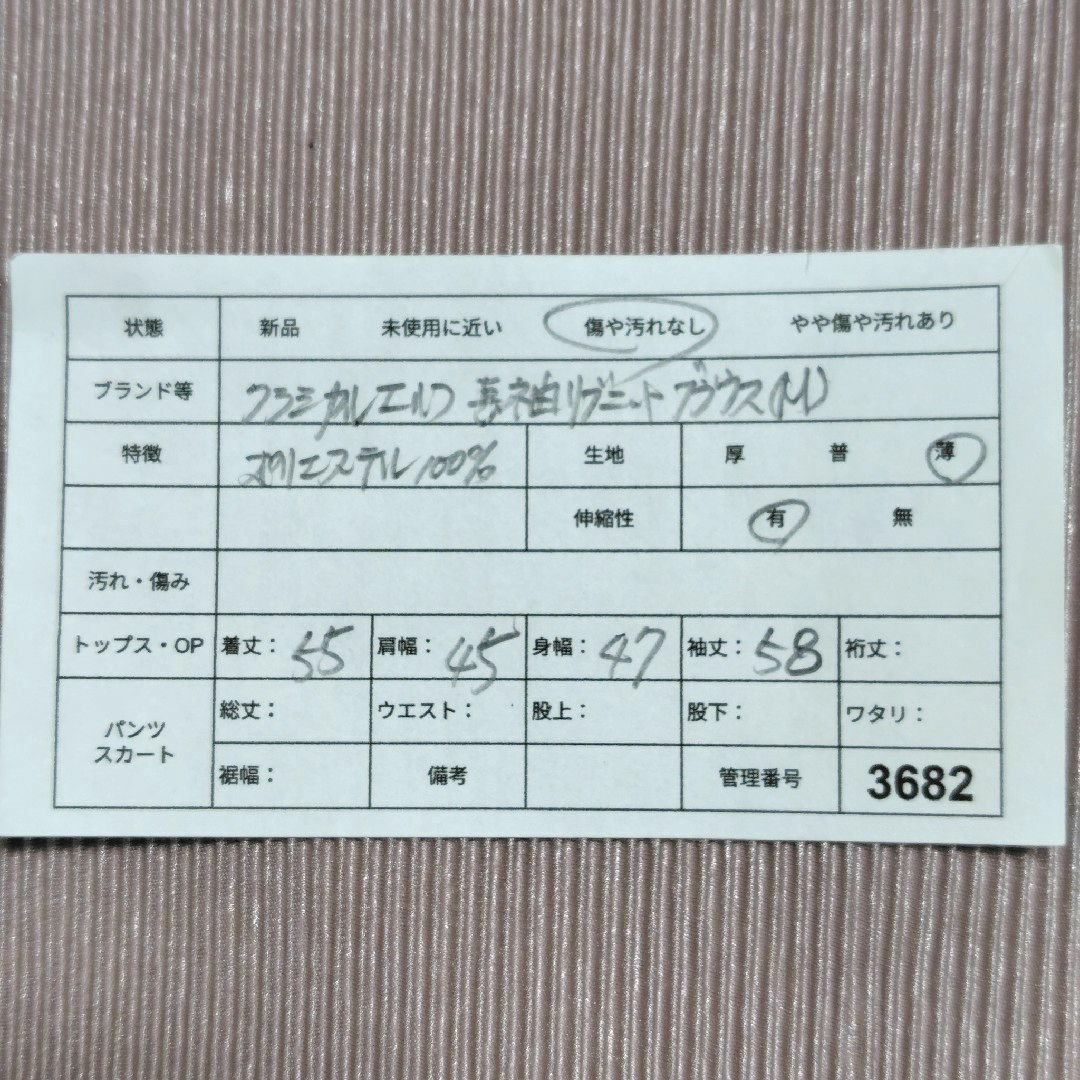 状態 新品 未使用に近い 傷や汚れなし やや傷や汚れあり
ブランド等 クラシカルエルフ 長袖リブニットブラウス(M)
特徴 ポリエステル100% 生地 厚 普 薄
伸縮性 有 無
汚れ・傷み
トップス・OP 着丈: 55 肩幅: 45 身幅: 47 袖丈: 58 裄丈:
パンツ スカート 総丈: ウエスト: 股上: 股下: ワタリ:
裾幅: 備考 管理番号 3682